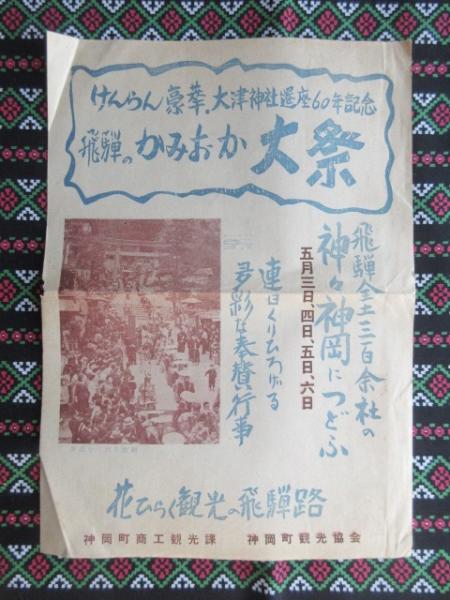 けんらん豪華、大津神社遷座60年記念
飛騨のかみおか大祭
飛騨全土三百余社の
神々神岡につどふ
五月三日、四日、五日、六日
連日くりひろげる
多彩な奉賛行事
花ひらく観光の飛騨路
神岡町商工観光課 神岡町観光協会